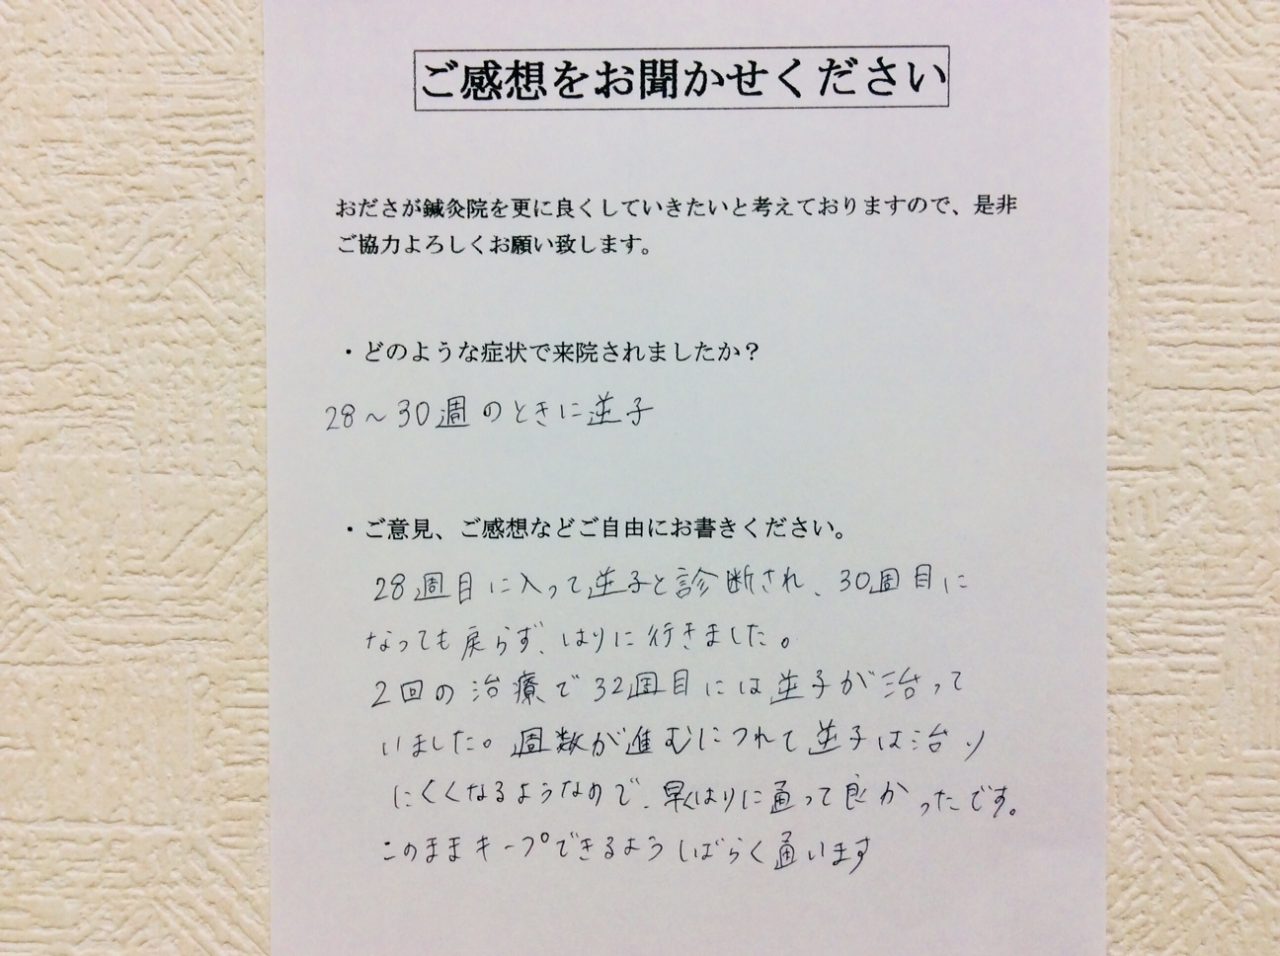 ご感想をお聞かせください
おださが鍼灸院を更に良くしていきたいと考えておりますので、是非
ご協力よろしくお願い致します。
・どのような症状で来院されましたか？
28～30週のときに逆子
・ご意見、ご感想などご自由にお書きください。
28週目に入って逆子と診断され、30週目に
なっても戻らず、はりに行きました。
2回の治療で32週目には逆子が治って
いました。週数が進むにつれて逆子は治り
にくくなるようなので、早くはりに通って良かったです。
このままキープできるようしばらく通います